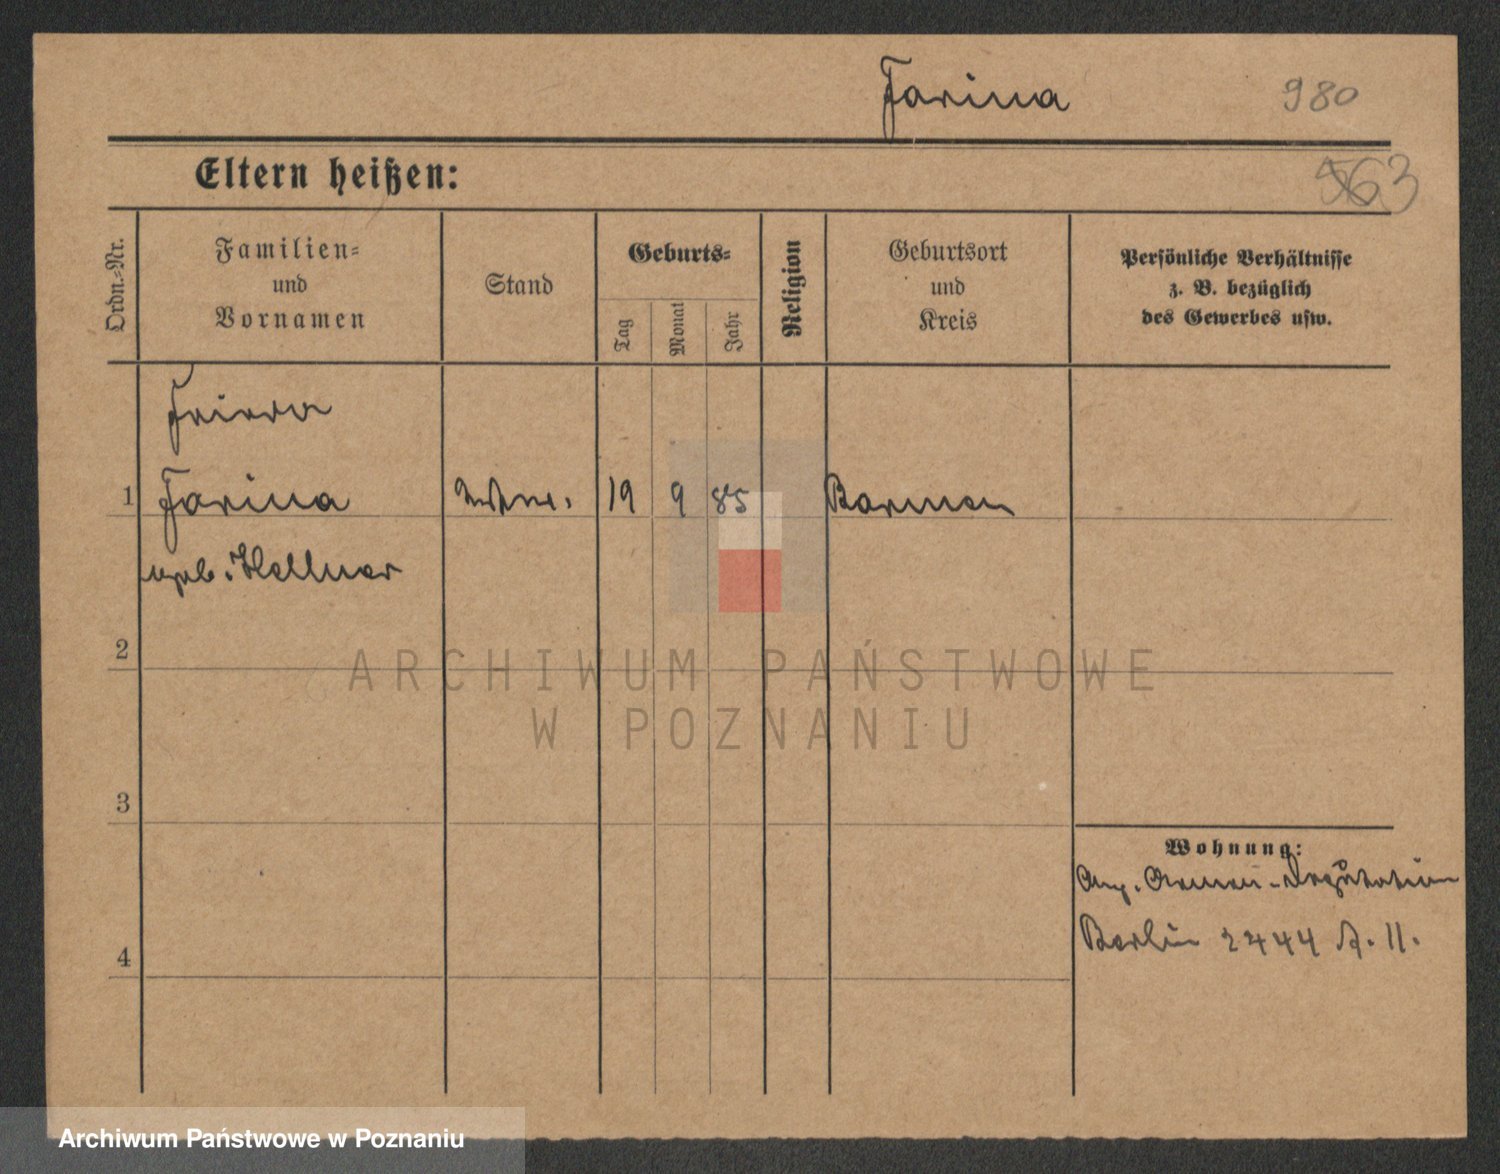 Farina 980
Eltern heißen: 563
Ordn.-Nr.
Familien-
und
Vornamen
Stand
Geburts-
Tag
Monat
Jahr
Religion
Geburtsort
und
Kreis
Persönliche Verhältnisse
z. B. bezüglich
des Gewerbes usw.
1 Farina 19 9 85 Barmen
geb. Hellner
2
3
4
Wohnung:
Ang. Armen-Deputation
Berlin 2444 A. II.
ARCHIWUM PAŃSTWOWE
W POZNANIU
Archiwum Państwowe w Poznaniu